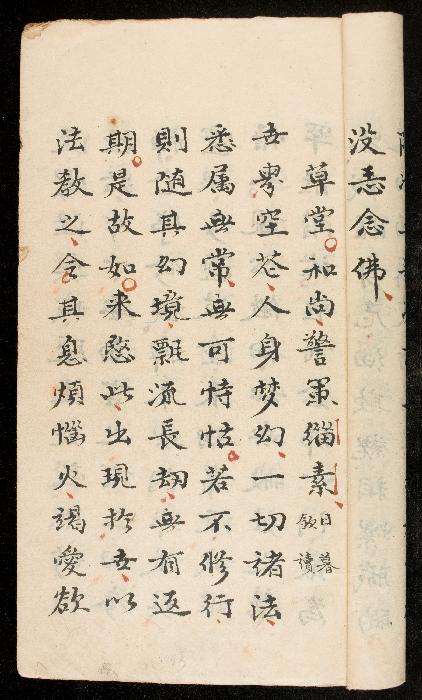 没恶念佛
草堂和尚警策緇素日暮欲讀
世界空花人身梦幻一切诸法
悉属無常無可恃怙若不修行
則随其幻境飄流長劫無有返
期是故如来愍此出現於世以
法教之令其息煩惱火竭愛欲